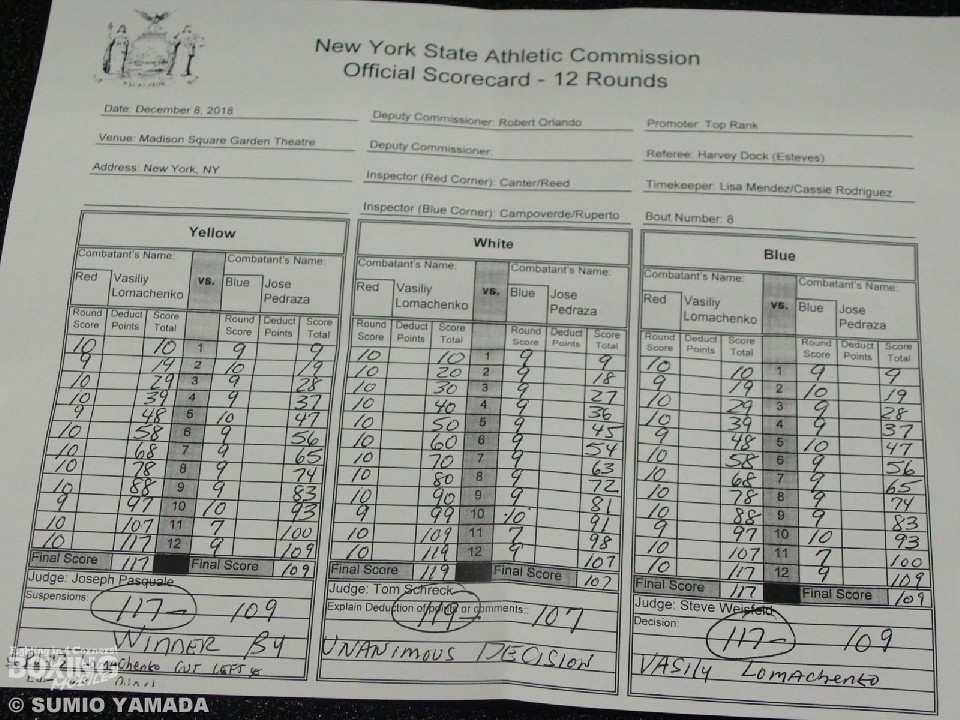 New York State Athletic Commission
Official Scorecard - 12 Rounds
Date: December 8, 2018
Deputy Commissioner: Robert Orlando
Promoter: Top Rank
Venue: Madison Square Garden Theatre
Deputy Commissioner:
Referee: Harvey Dock (Esteves)
Address: New York, NY
Inspector (Red Corner): Canter/Reed
Timekeeper: Lisa Mendez/Cassie Rodriguez
Inspector (Blue Corner): Campoverde/Ruperto
Bout Number: 8
Yellow
Combatant's Name: Combatant's Name:
Red Vasiliy Lomachenko vs. Blue Jose Pedraza
Round Score Deduct Points Score Total Round Score Deduct Points Score Total
10 10 1 9 9
9 19 2 10 19
10 29 3 9 28
10 39 4 9 37
9 48 5 10 47
10 58 6 9 56
10 68 7 9 65
10 78 8 9 74
10 88 9 9 83
9 97 10 10 93
10 107 11 7 100
10 117 12 9 109
Final Score 117 Final Score 109
Judge: Joseph Pasquale
Suspensions:
117- 109
WINNER BY
Lomachenko CUT LEFT
White
Combatant's Name: Combatant's Name:
Red Vasiliy Lomachenko vs. Blue Jose Pedraza
Round Score Deduct Points Score Total Round Score Deduct Points Score Total
10 10 1 9 9
10 20 2 9 18
10 30 3 9 27
10 40 4 9 36
10 50 5 9 45
10 60 6 9 54
10 70 7 9 63
10 80 8 9 72
10 90 9 9 81
9 99 10 10 91
10 109 11 7 98
10 119 12 9 107
Final Score 119 Final Score 107
Judge: Tom Schreck
Explain Deduction of points or comments:
119- 107
UNANIMOUS DECISION
Blue
Combatant's Name: Combatant's Name:
Red Vasiliy Lomachenko vs. Blue Jose Pedraza
Round Score Deduct Points Score Total Round Score Deduct Points Score Total
10 10 1 9 9
9 19 2 10 19
10 29 3 9 28
10 39 4 9 37
9 48 5 10 47
10 58 6 9 56
10 68 7 9 65
10 78 8 9 74
10 88 9 9 83
9 97 10 10 93
10 107 11 7 100
10 117 12 9 109
Final Score 117 Final Score 109
Judge: Steve Weisfeld
Decision:
117- 109
VASILY LOMACHENKO
BOXING
© SUMIO YAMADA